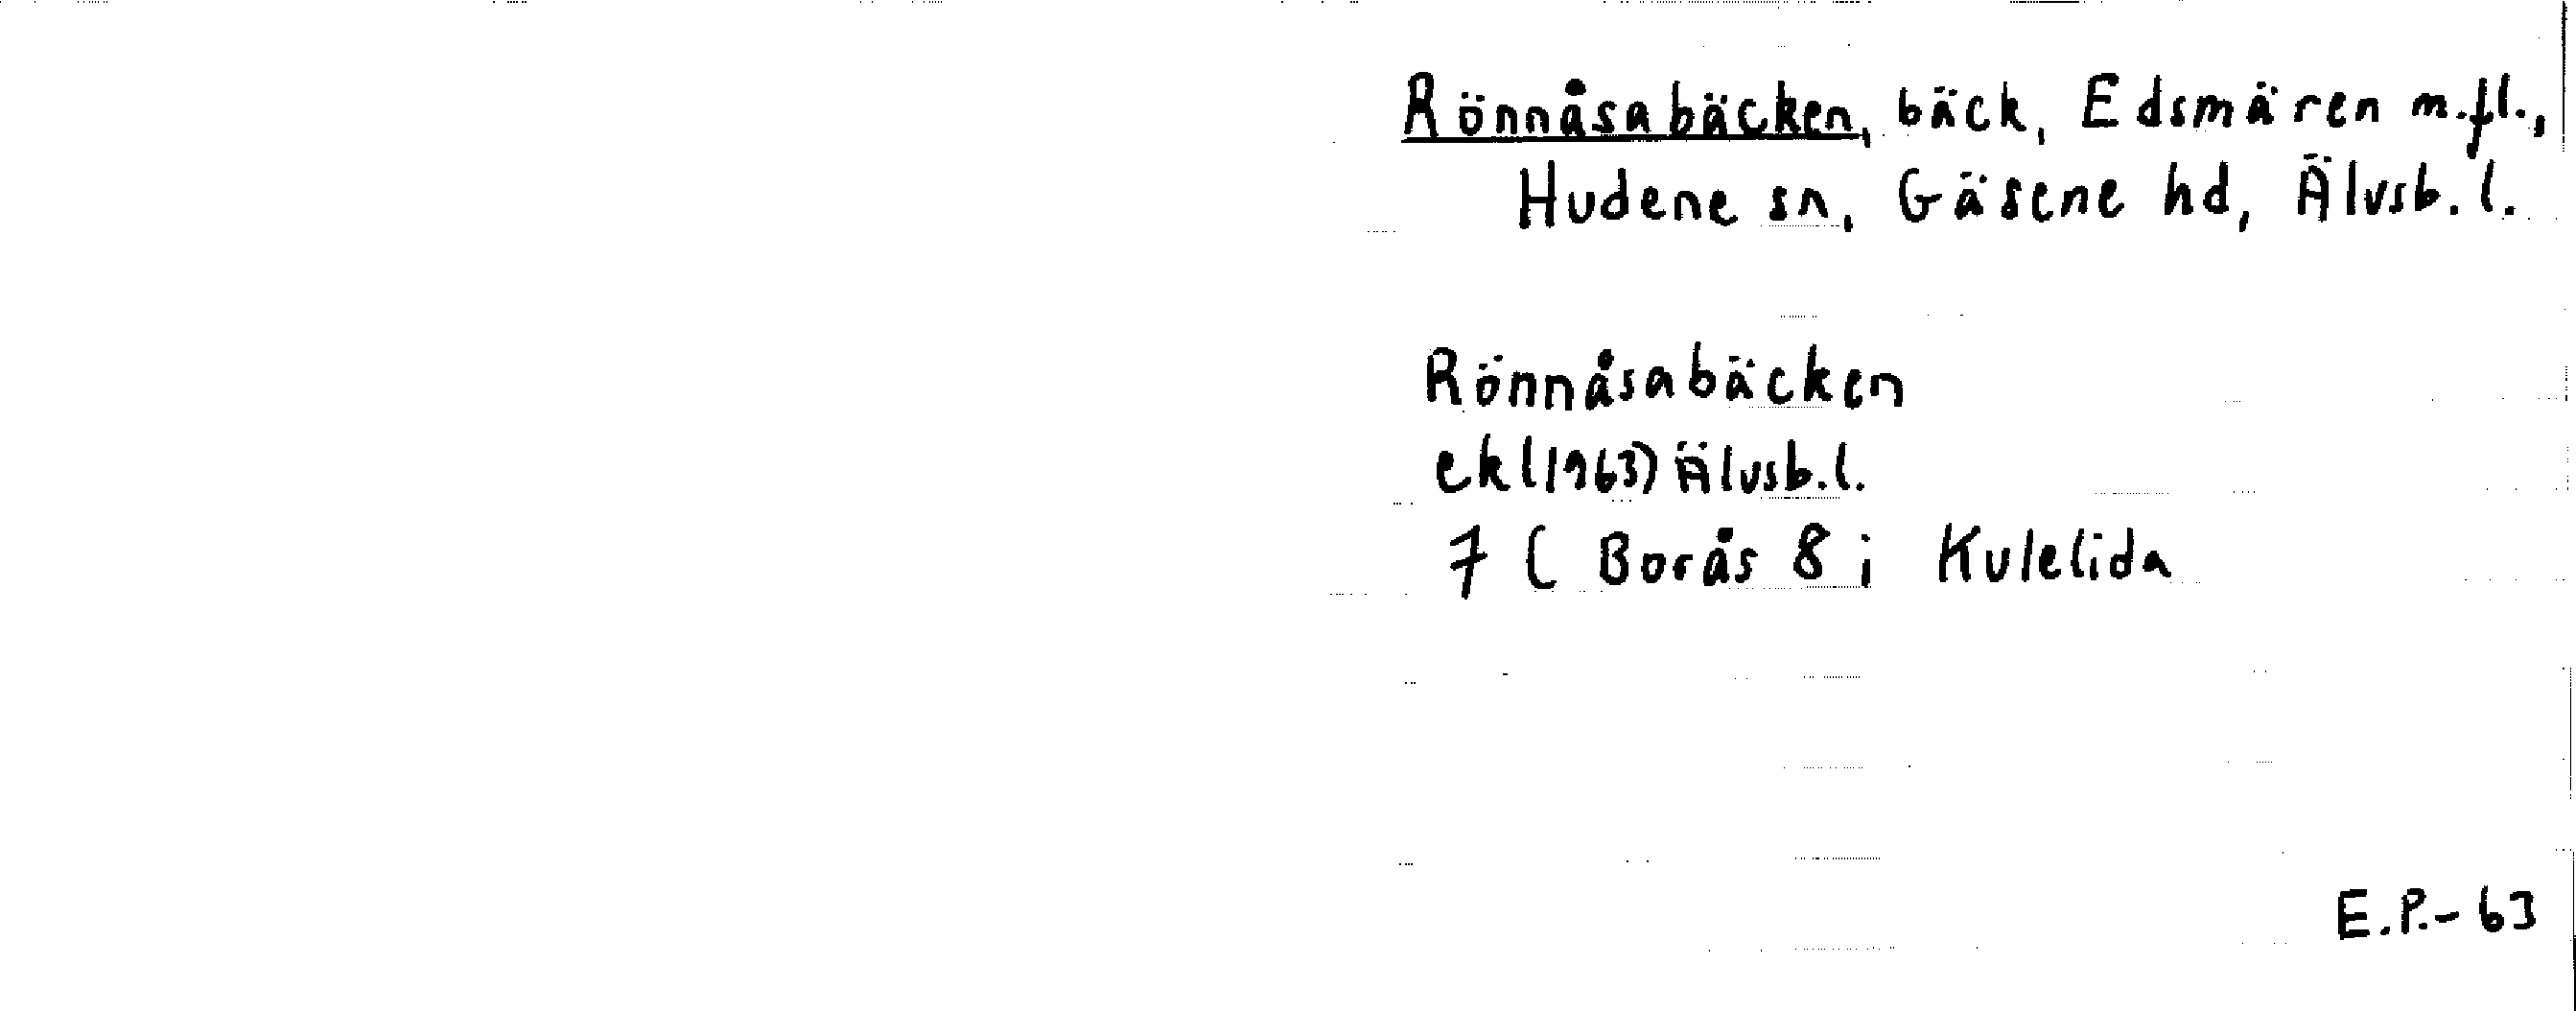 Rönnåsabäcken, bäck, Edsmären m.fl.,
Hudene sn, Gäsene hd, Älvsb.l.
Rönnåsabäcken
ek(1963) Älvsb.l.
7 ( Borås 8 i Kulelida
E.P.-63